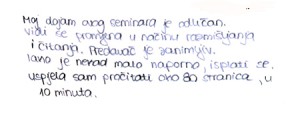 Moj dojam ovog seminara je odličan.
Vidi se promjena u načinu razmišljanja
i čitanja. Predavač je zanimljiv.
Iako je nekad malo naporno, isplati se.
uspjela sam pročitati oko 80 stranica, u
10 minuta.